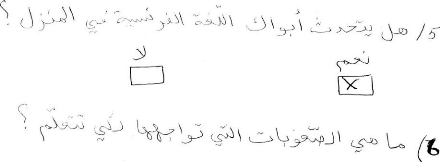 5/ هل يتحدث أبواك اللّغة الفرنسية في المنزل ؟
نعم لا
x
6) ما هي الصّعوبات التي تواجهها لكي تتعلّم ؟